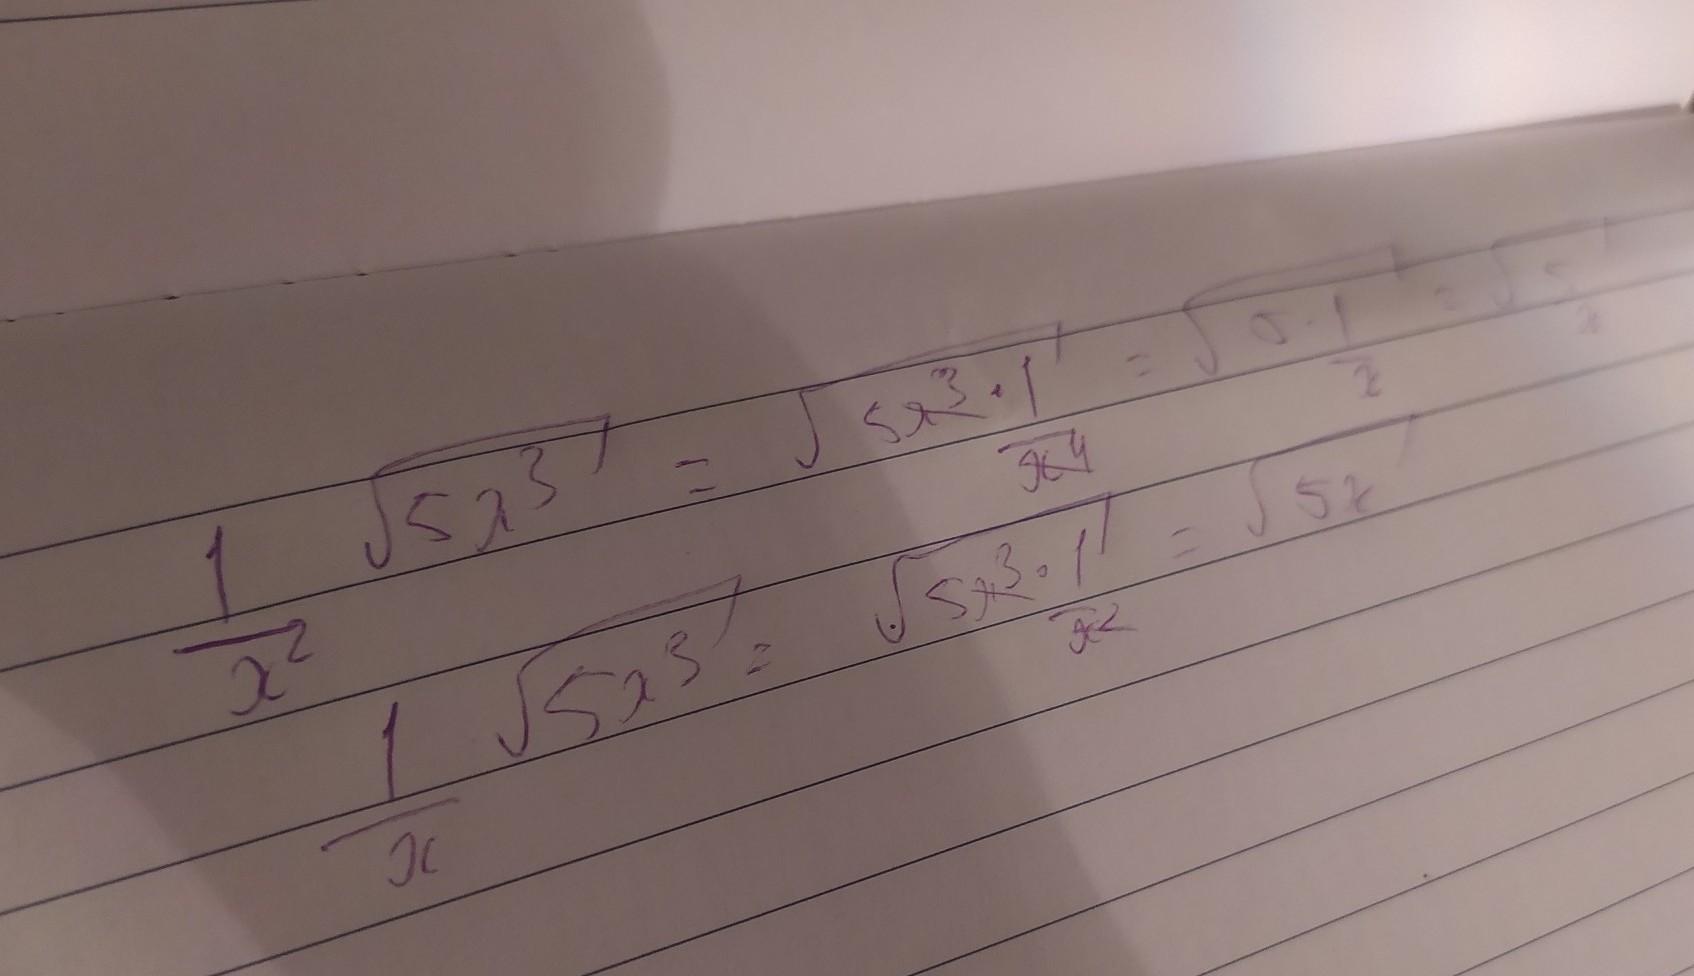 1/x² √5x³ = √5x³·1/x⁴ = √5·1/x = √5/x
1/x √5x³ = √5x³·1/x² = √5x